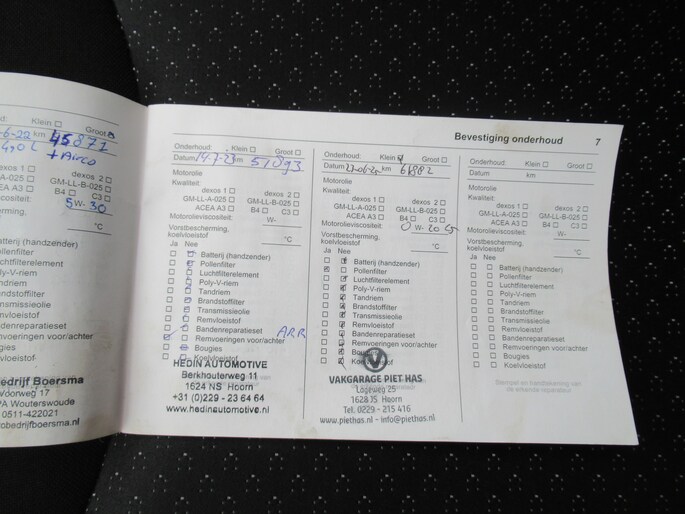 Bevestiging onderhoud 7
Klein
Groot
-6-22 km 45871
4,0 L + Airco
dexos 1
dexos 2
GM-LL-A-025
GM-LL-B-025
ACEA A3
B4 C3
5 W- 30
°C
Batterij (handzender)
Pollenfilter
Luchtfilterelement
Poly-V-riem
Tandriem
Brandstoffilter
Transmissieolie
Remvloeistof
Bandenreparatieset
Remvoeringen voor/achter
Bougies
Koelvloeistof
edrijf Boersma
Voorweg 17
PA Wouterswoude
0511-422021
obedrijfboersma.nl
Onderhoud: Klein Groot
Datum 14-7-23 km 57893
Motorolie
Kwaliteit:
dexos 1 dexos 2
GM-LL-A-025 GM-LL-B-025
ACEA A3 B4 C3
Motorolieviscositeit: W-
Vorstbescherming,
koelvloeistof °C
Ja Nee
Batterij (handzender)
Pollenfilter
Luchtfilterelement
Poly-V-riem
Tandriem
Brandstoffilter
Transmissieolie
Remvloeistof
Bandenreparatieset ARR
Remvoeringen voor/achter
Bougies
Koelvloeistof
HEDIN AUTOMOTIVE
Berkhouterweg 11
1624 NS Hoorn
+31 (0)229 - 23 64 64
www.hedinautomotive.nl
Onderhoud: Klein Groot
Datum km
Motorolie
Kwaliteit:
dexos 1 dexos 2
GM-LL-A-025 GM-LL-B-025
ACEA A3 B4 C3
Motorolieviscositeit: 0 W- 20
Vorstbescherming,
koelvloeistof °C
Ja Nee
Batterij (handzender)
Pollenfilter
Luchtfilterelement
Poly-V-riem
Tandriem
Brandstoffilter
Transmissieolie
Remvloeistof
Bandenreparatieset
Remvoeringen voor/achter
Bougies
Koelvloeistof
VAKGARAGE PIET HAS
Logeweg 25
1628 JS Hoorn
Tel. 0229 - 215 416
www.piethas.nl - info@piethas.nl
Onderhoud: Klein Groot
Datum km
Motorolie
Kwaliteit:
dexos 1 dexos 2
GM-LL-A-025 GM-LL-B-025
ACEA A3 B4 C3
Motorolieviscositeit: W-
Vorstbescherming,
koelvloeistof °C
Ja Nee
Batterij (handzender)
Pollenfilter
Luchtfilterelement
Poly-V-riem
Tandriem
Brandstoffilter
Transmissieolie
Remvloeistof
Bandenreparatieset
Remvoeringen voor/achter
Bougies
Koelvloeistof
Stempel en handtekening van
de erkende reparateur